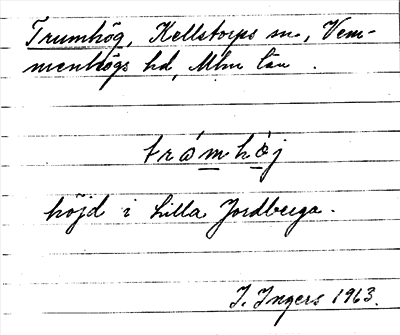 Trumhög, Kellstorps sn., Vem-
menhögs hd, Mlm län.
tråmhøj
höjd i Lilla Jordberga.
I. Ingers 1963.